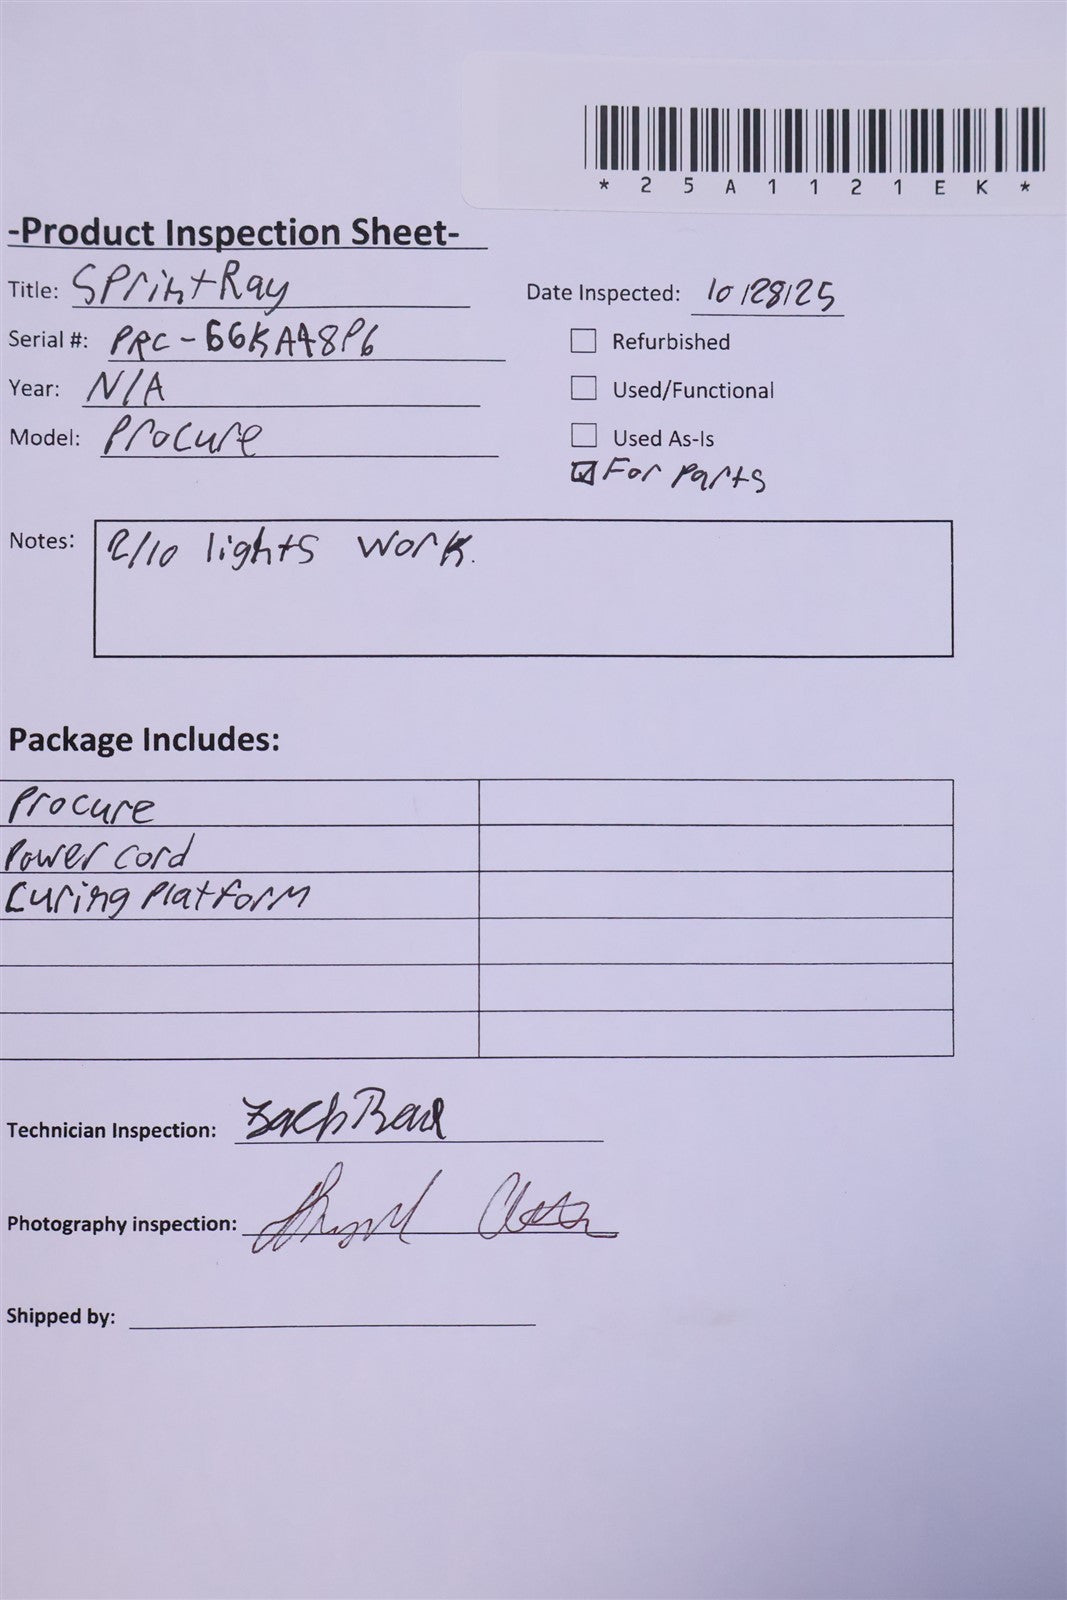 *25A1121EK*
-Product Inspection Sheet-
Title: SPrintRay
Date Inspected: 10/28/25
Serial #: PRC-66KAA8P6
Refurbished
Year: N/A
Used/Functional
Model: Procure
Used As-Is
For Parts
Notes: 2/10 lights work.
Package Includes:
Procure
Power cord
Curing Platform
Technician Inspection: Zach
Photography inspection:
Shipped by: